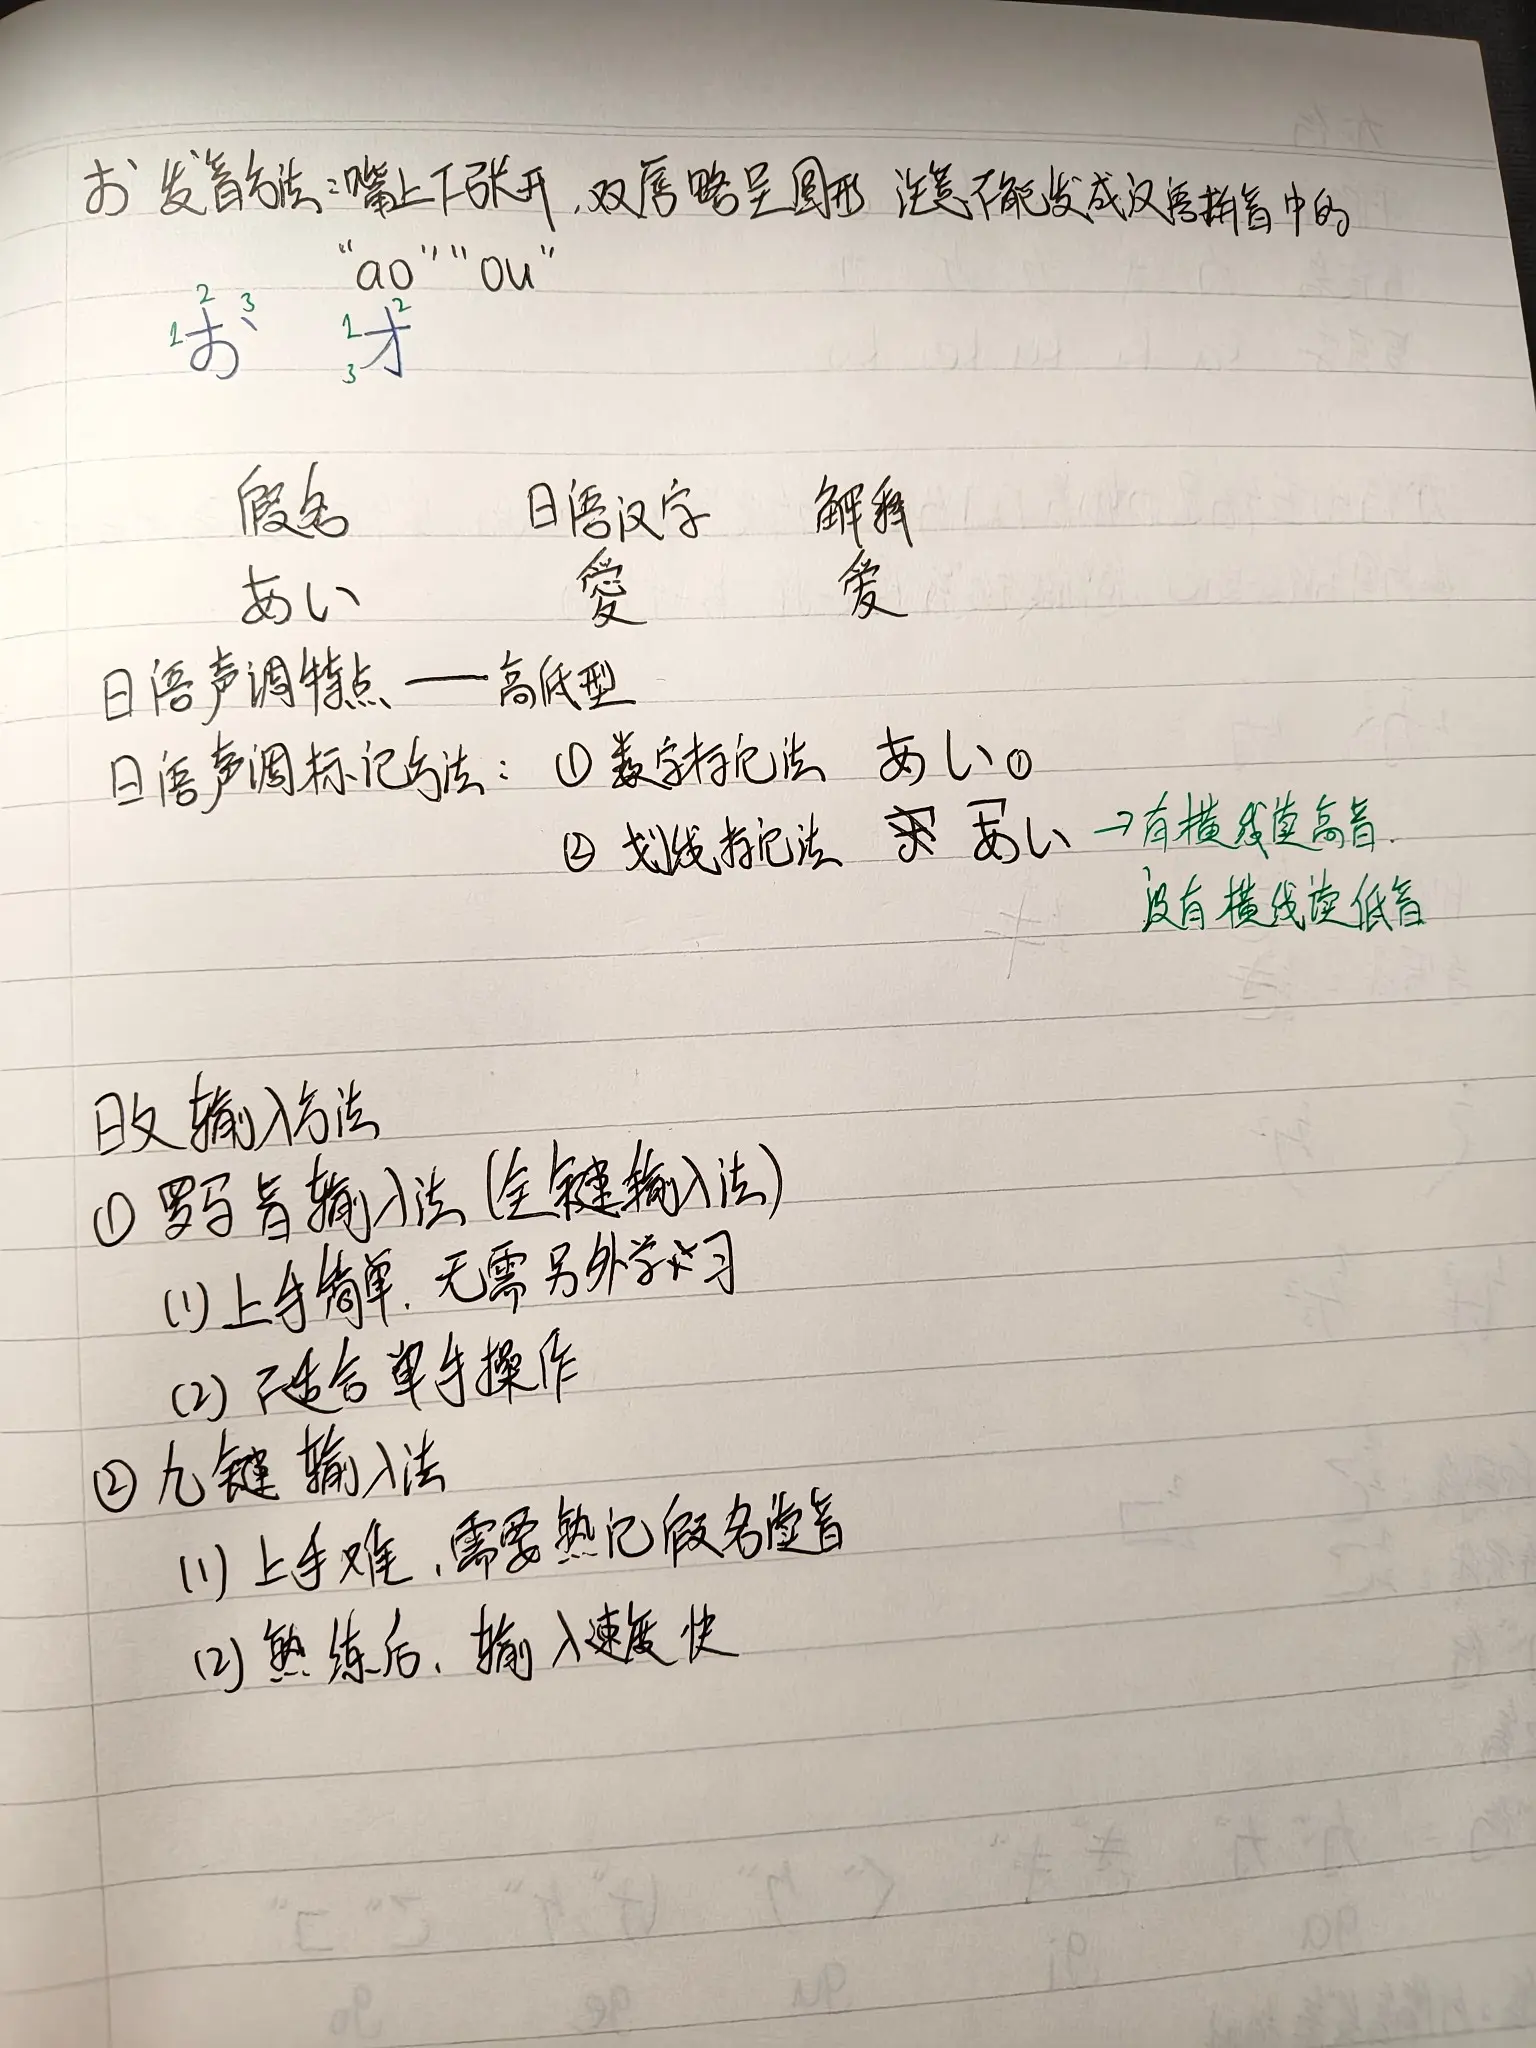 お 发音方法：嘴上下张开，双唇略呈圆形 注意不能发成汉语拼音中的
“ao”“ou”
1 2 3 お 1 2 3 オ
假名 日语汉字 解释
あい 愛 爱
日语声调特点——高低型
日语声调标记方法：① 数字标记法 あい①
② 划线标记法 あい →有横线读高音.
没有横线读低音
日文输入方法
① 罗马音输入法(全键输入法)
(1) 上手简单，无需另外学习
(2) 不适合单手操作
② 九键输入法
(1) 上手难，需要熟记假名读音
(2) 熟练后，输入速度快